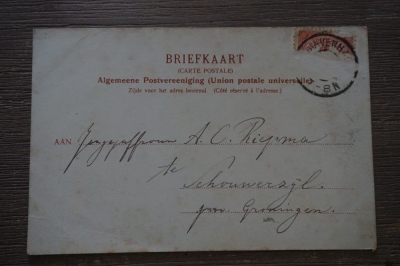 BRIEFKAART
(CARTE POSTALE)
Algemeene Postvereeniging (Union postale universelle)
Zijde voor het adres bestemd. (Côté réservé à l'adresse.)
AAN Jongejuffrouw A. C. Riepma
te
Schouwerzijl.
prov Groningen.